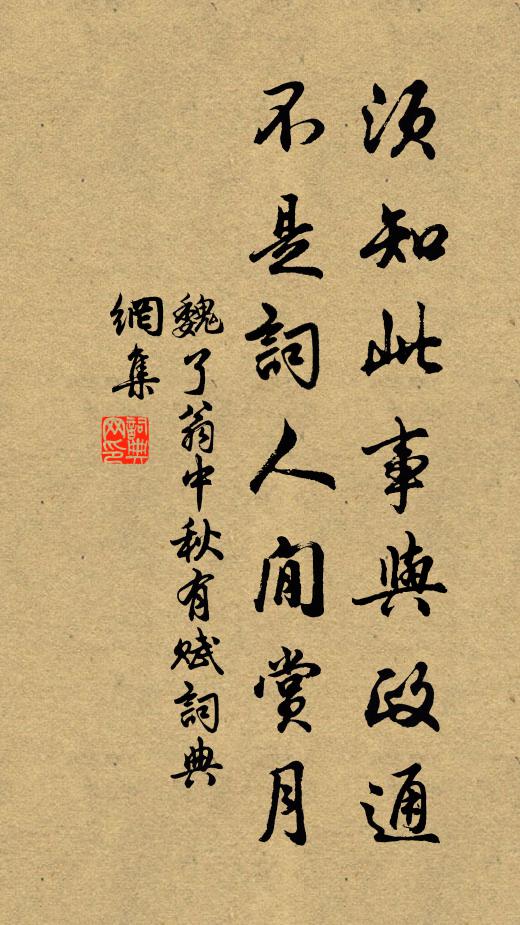 須知此事與政通
不是詞人閒賞月
魏了翁中秋有賦詞典
網集
詞典
网印